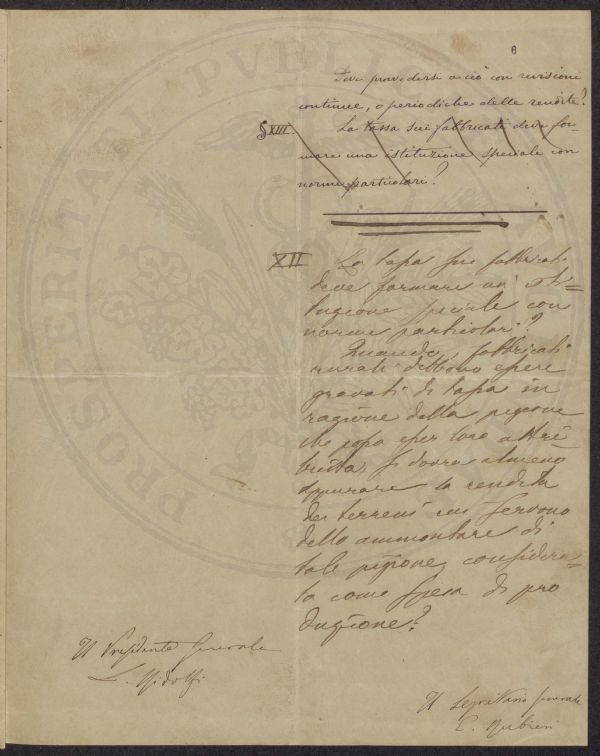 6
Deve provedersi a ciò con revisioni
continue, o periodiche delle rendite?
§XIII. La tassa sui fabbricati deve for-
mare una istituzione speciale con
norme particolari?
XII La tassa sui fabbricati
deve formare un' isti=
tuzione speciale con
norme particolari?
Quando i fabbricati
rurali debbono essere
gravati di tassa in
ragione della pigione
che possa esser loro attri
buita, si dovrà almeno
appurare la rendita
dei terreni cui servono
dello ammontare di
tale pigione, considera=
ta come spesa di pro
duzione?
Il Presidente Generale
L. Ridolfi
Il Segretario Generale
E. Rubieri
PROSPERITATI PVBLIC